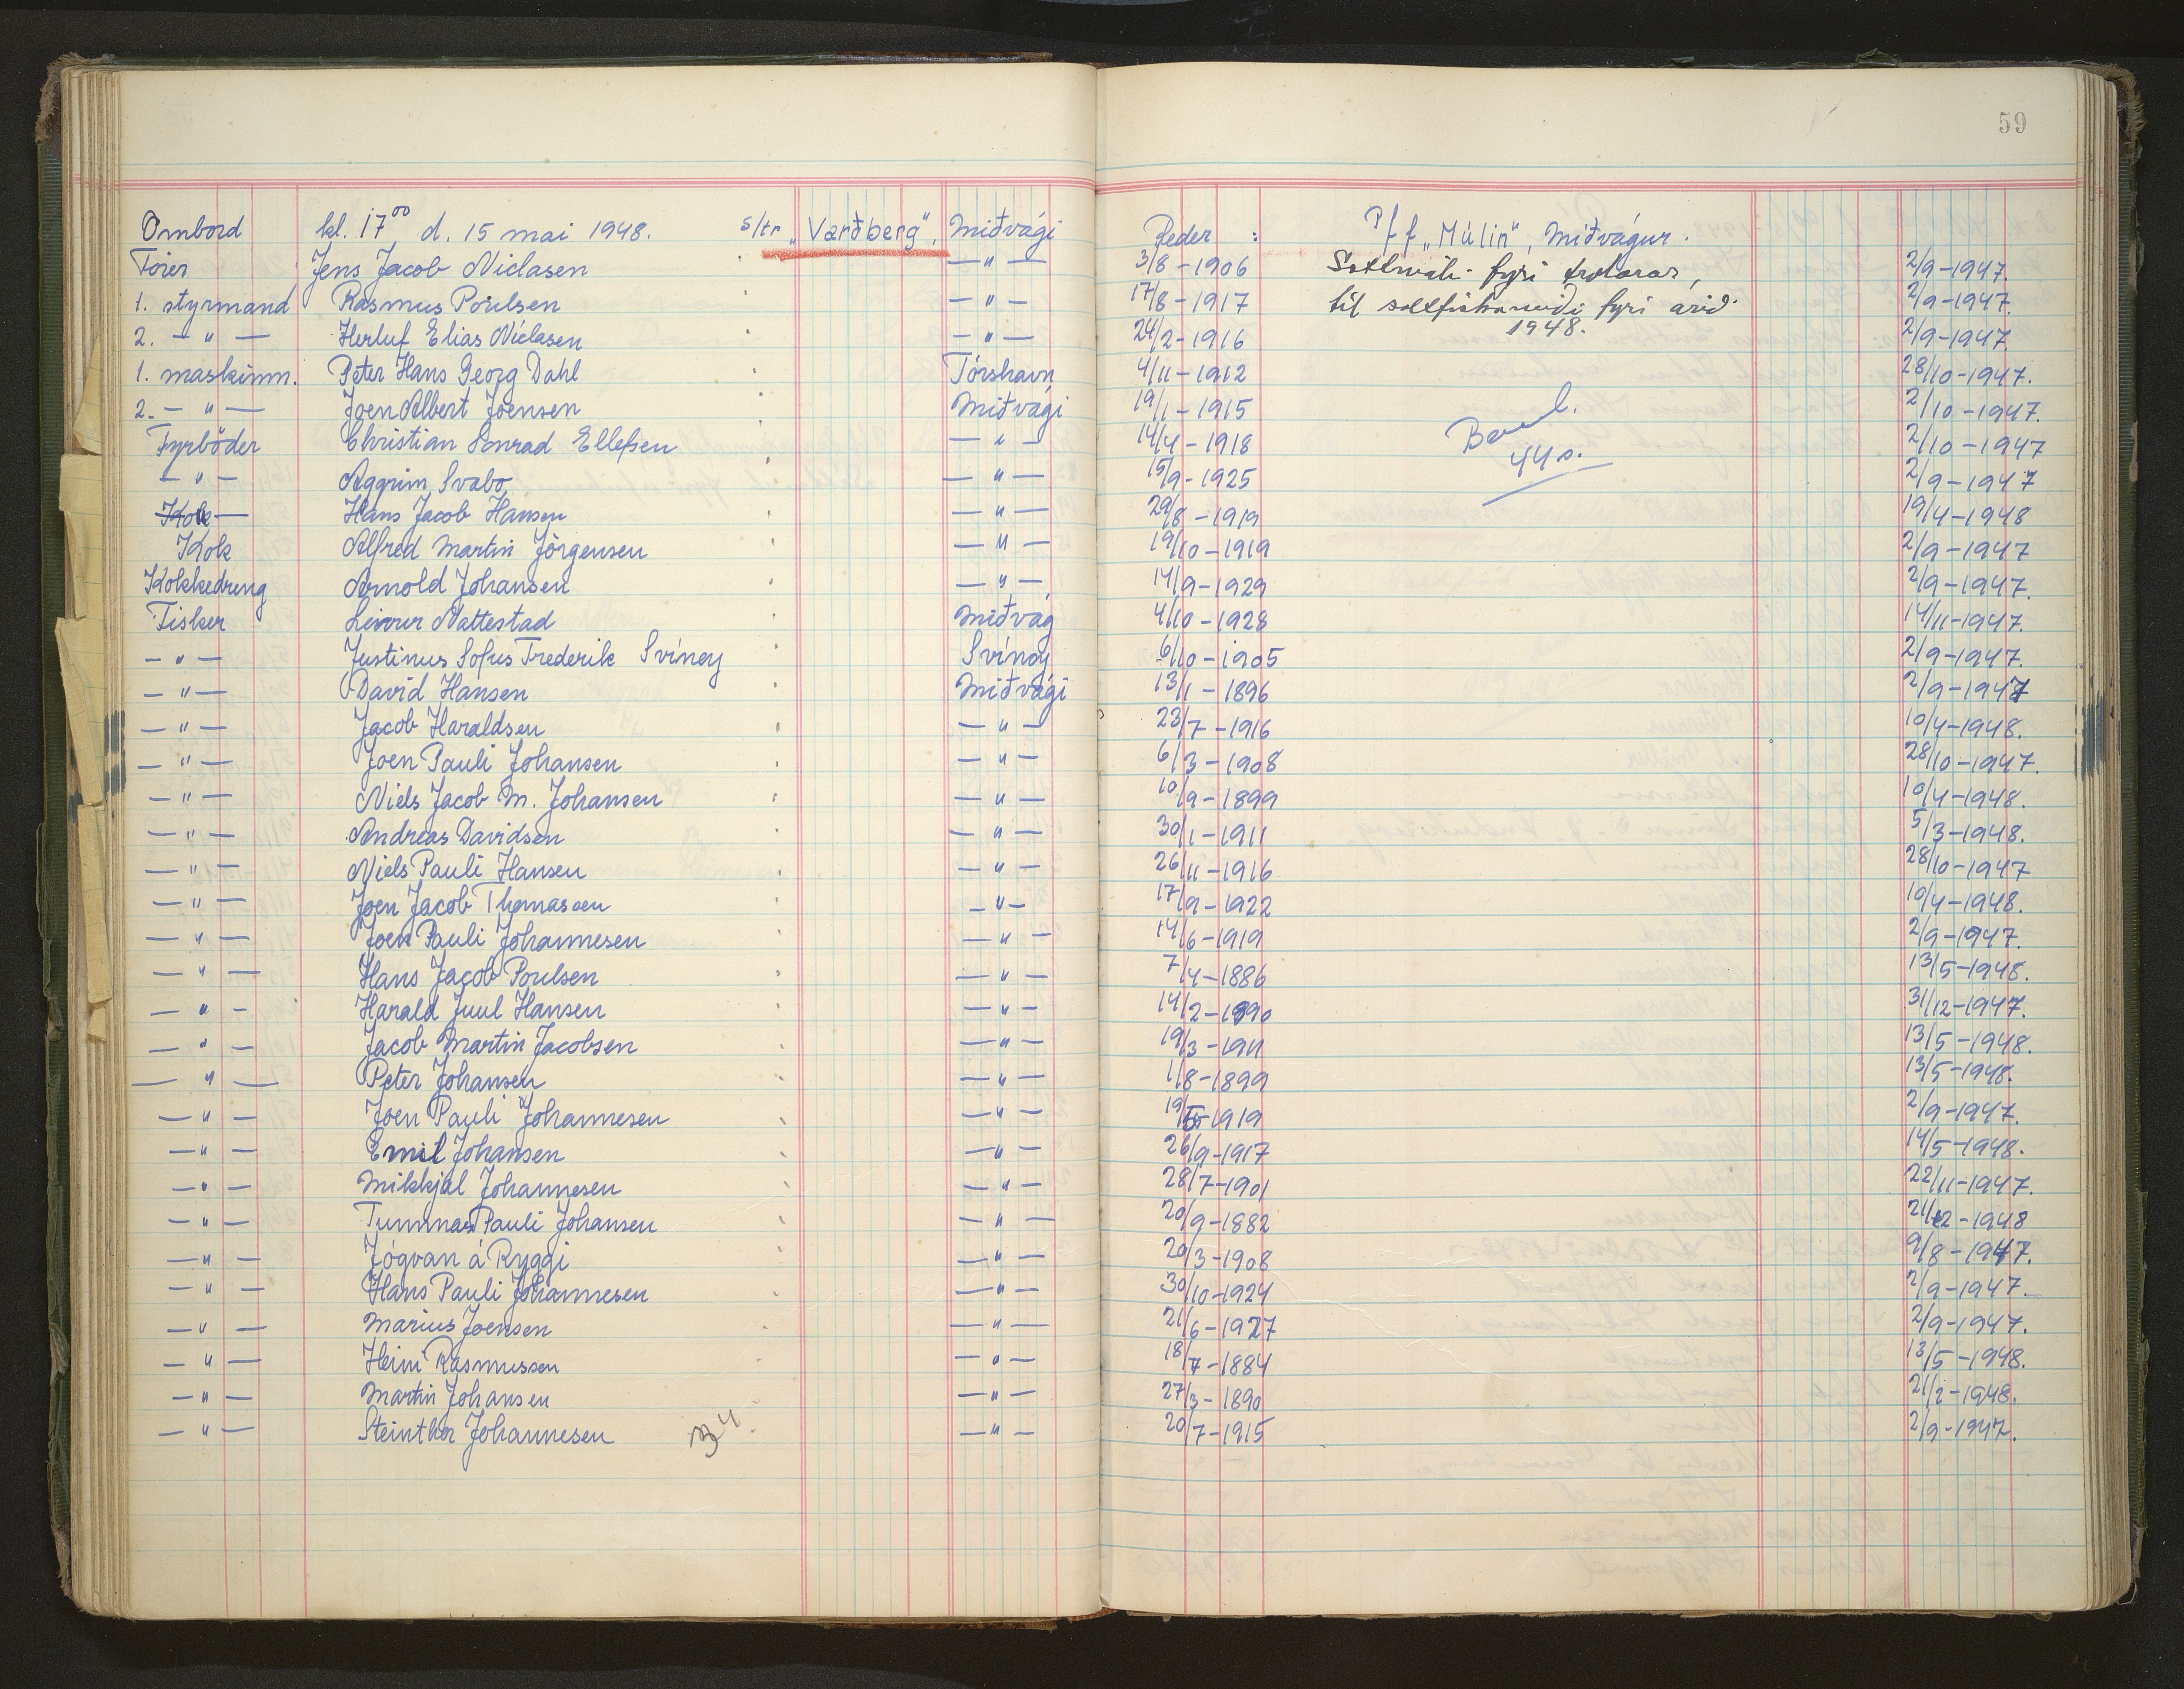 59
Ombord kl. 17⁰⁰ d. 15 mai 1948. s/tr „Varðberg", Miðvági Reder : P/f „Múlin", Miðvágur.
Förer Jens Jacob Niclasen — " — 3/8-1906 fyri trolarar, 2/9-1947.
1. styrmand Rasmus Poulsen — " — 17/8-1917 til saltfiskaveiði fyri árið 2/9-1947.
2. — " — Herluf Elias Niclasen — " — 24/2-1916 1948. 2/9-1947.
1. maskinm. Peter Hans Georg Dahl Tórshavn 4/11-1912 28/10-1947.
2. — " — Joen Albert Joensen Miðvági 19/1-1915 2/10-1947.
Fyrböder Christian Conrad Ellefsen — " — 14/4-1918 44 s. 2/10-1947
— " — Aggrim Svabo — " — 15/9-1925 2/9-1947
— " — Hans Jacob Hansen — " — 29/8-1919 19/4-1948
Kok Alfred Martin Jörgensen — " — 19/10-1919 2/9-1947
Kokkedreng Arnold Johansen — " — 14/9-1929 2/9-1947.
Fisker Leivur Nattestad Miðvág 4/10-1928 14/11-1947.
— " — Justinus Sofus Frederik Svínoy Svínoy 6/10-1905 2/9-1947.
— " — David Hansen Miðvági 13/1-1896 2/9-1947
— " — Jacob Haraldsen — " — 23/7-1916 10/4-1948.
— " — Joen Pauli Johansen — " — 6/3-1908 28/10-1947.
— " — Niels Jacob M. Johansen — " — 10/9-1899 10/4-1948.
— " — Andreas Davidsen — " — 30/1-1911 5/3-1948.
— " — Niels Pauli Hansen — " — 26/11-1916 28/10-1947
— " — Joen Jacob Thomassen — " — 17/9-1922 10/4-1948.
— " — Joen Pauli Johannesen — " — 14/6-1919 2/9-1947.
— " — Hans Jacob Poulsen — " — 7/4-1886 13/5-1948.
— " — Harald Juul Hansen — " — 14/2-1890 31/12-1947.
— " — Jacob Martin Jacobsen — " — 19/3-1911 13/5-1948.
— " — Peter Johansen — " — 1/8-1899 13/5-1948.
— " — Joen Pauli Johannesen — " — 19/5-1919 2/9-1947.
— " — Emil Johansen — " — 26/9-1917 14/5-1948.
— " — Mikkjal Johannesen — " — 28/7-1901 22/11-1947.
— " — Tummas Pauli Johansen — " — 20/9-1882 21/2-1948
— " — Jógvan á Ryggi — " — 20/3-1908 9/8-1947.
— " — Hans Pauli Johannesen — " — 30/10-1924 2/9-1947.
— " — Marius Joensen — " — 21/6-1927 2/9-1947.
— " — Heini Rasmussen — " — 18/7-1884 13/5-1948.
— " — Martin Johansen — " — 27/3-1890 21/2-1948.
— " — Steinthor Johannesen 34 — " — 20/7-1915 2/9-1947.